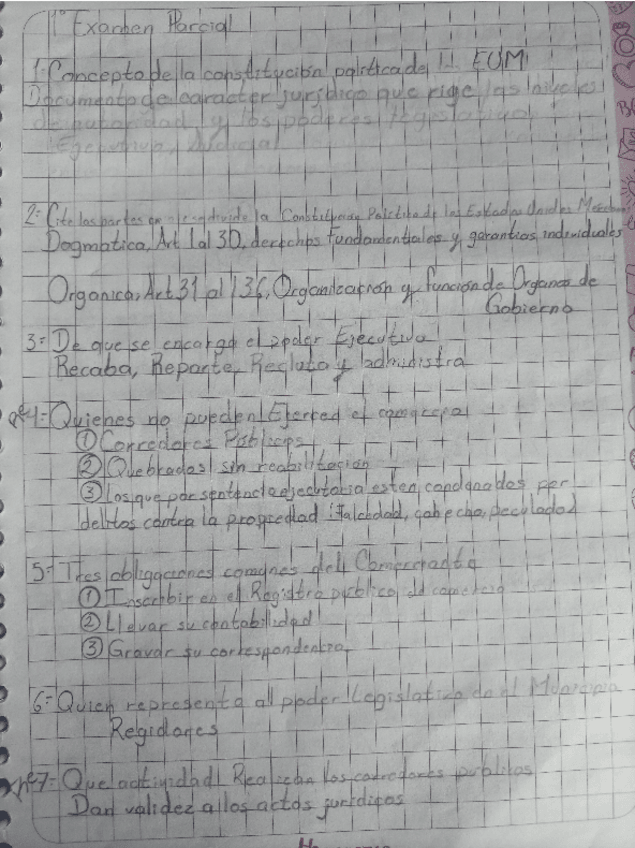 1° Examen Parcial
1: Concepto de la constitución política de EUM
Documento de caracter jurídico que rige las niveles
de autoridad y los poderes legislativo
Egecutivo, Judicial
2: Cite las partes en divide la Constitucion Politica de los Estados Unidos
Dogmatica, Art 1 al 30, derechos fundamentales y garantias individuales
Organica, Art 31 al 136, Organización y función de Organos de
Gobierno
3: De que se encarga el poder Ejecutivo
Recaba, Reparte, Recluta y administra
4: Quienes no pueden Ejercer el
① Corredores Públicos
② Quebrados sin reabilitación
③ Los que por sentencia ejecutoria esten condenados por
delitos contra la propiedad (falcedad, cohecho, peculado)
5: Tres obligaciones comunes del Comerciante
① Inscribir en el Registro público de comercio
② Llevar su contabilidad
③ Gravar su correspondencia
6: Quien representa al poder Legislativo de el Municipio
Regidores
7: Que actividad Realizan los corredores publicos
Dan validez a los actos juridicos